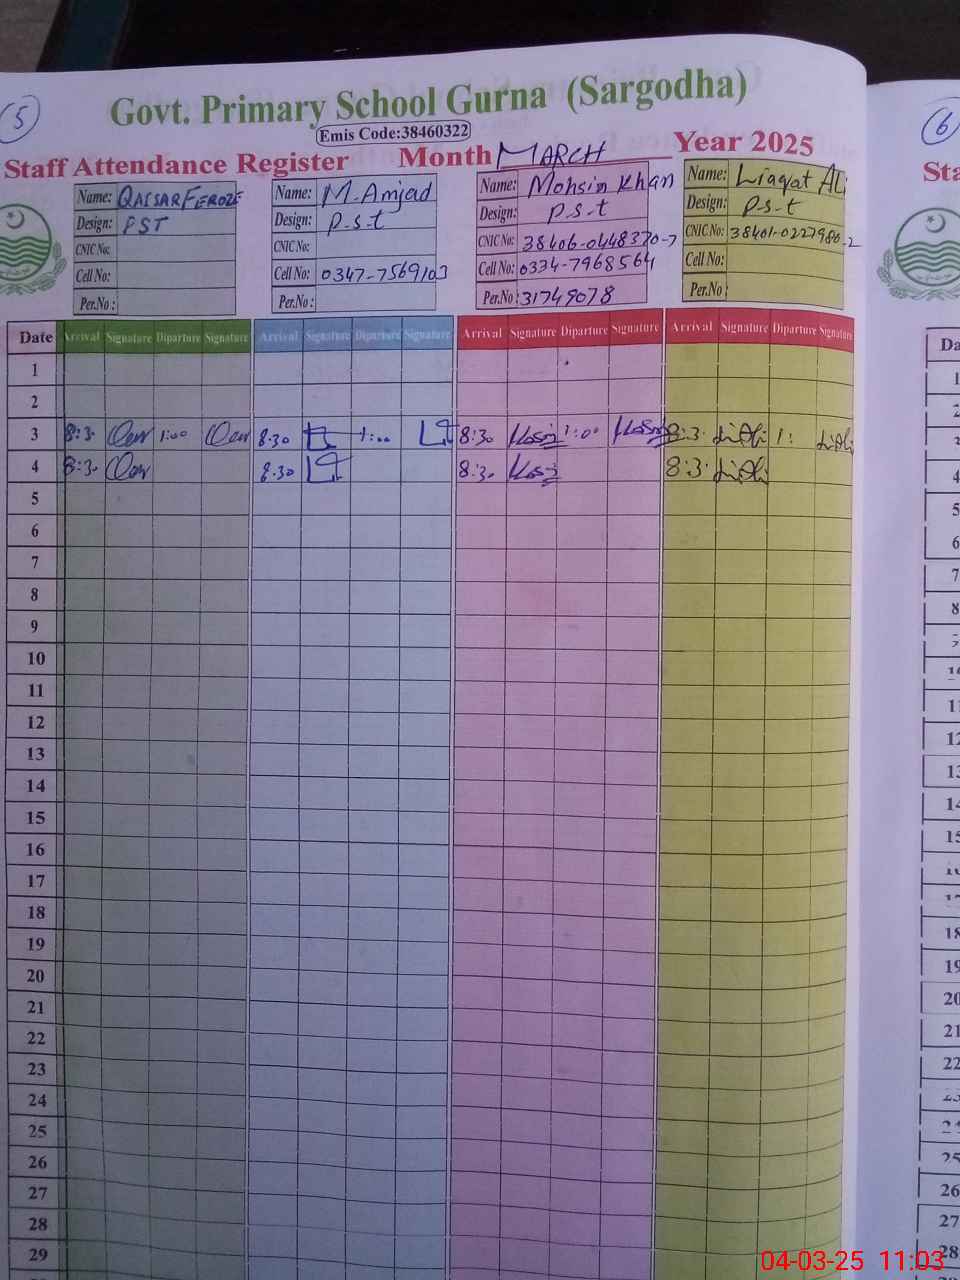 5
Govt. Primary School Gurna (Sargodha)
Emis Code:38460322
6
Staff Attendance Register Month MARCH Year 2025
Sta
Name: QAISAR FEROZE
Design: PST
CNIC No:
Cell No:
Per.No :
Name: M. Amjad
Design: P.s.t
CNIC No:
Cell No: 0347-7569103
Per.No :
Name: Mohsin Khan
Design: P.s.t
CNIC No: 38406-0448370-7
Cell No: 0334-7968564
Per.No : 31749078
Name: Liaqat Ali
Design: P.s.t
CNIC No: 38401-0227980-2
Cell No:
Per.No :
Date Arrival Signature Diparture Signature Arrival Signature Diparture Signature Arrival Signature Diparture Signature Arrival Signature Diparture Signature
1
2
3 8:3. 1:00 8.30 1:00 8:30 1:00 8:3. 1:
4 8:3. 8.30 8:3. 8:3.
5
6
7
8
9
10
11
12
13
14
15
16
17
18
19
20
21
22
23
24
25
26
27
28
29
Da
1
4
5
6
7
8
11
12
13
14
15
16
18
19
20
21
22
25
26
27
28
04-03-25 11:03